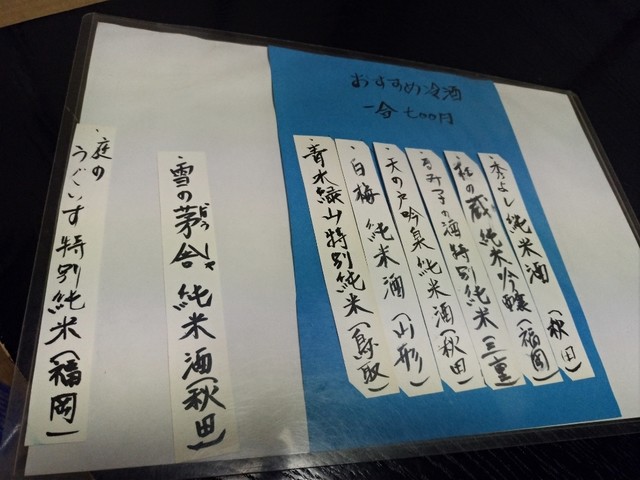 おすすめ冷酒
一合 七00円
・秀よし 純米酒 (秋田)
・杜の蔵 純米吟醸 (福岡)
・るみ子の酒 特別純米 (三重)
・天の戸 吟泉 純米酒 (秋田)
・白梅 純米酒 (山形)
・青水緑山 特別純米 (鳥取)
・雪の茅舎 純米酒 (秋田)
ぼうしゃ
・庭のうぐいす 特別純米 (福岡)